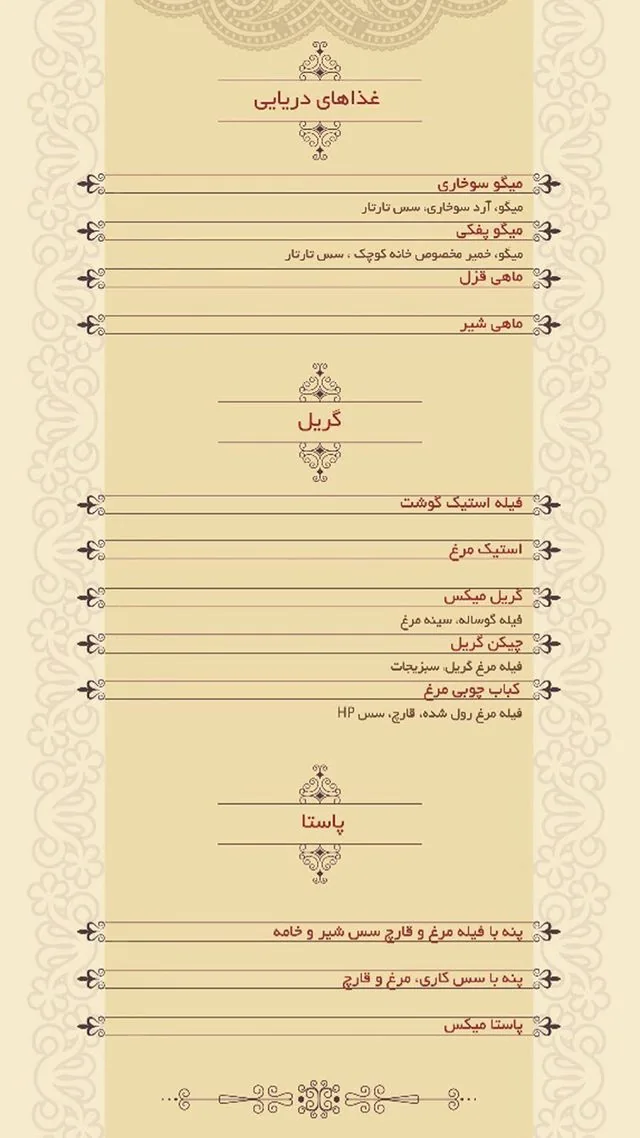 غذاهای دریایی
میگو سوخاری
میگو، آرد سوخاری، سس تارتار
میگو پفکی
میگو، خمیر مخصوص خانه کوچک ، سس تارتار
ماهی قزل
ماهی شیر
گریل
فیله استیک گوشت
استیک مرغ
گریل میکس
فیله گوساله، سینه مرغ
چیکن گریل
فیله مرغ گریل، سبزیجات
کباب چوبی مرغ
فیله مرغ رول شده، قارچ، سس HP
پاستا
پنه با فیله مرغ و قارچ سس شیر و خامه
پنه با سس کاری، مرغ و قارچ
پاستا میکس